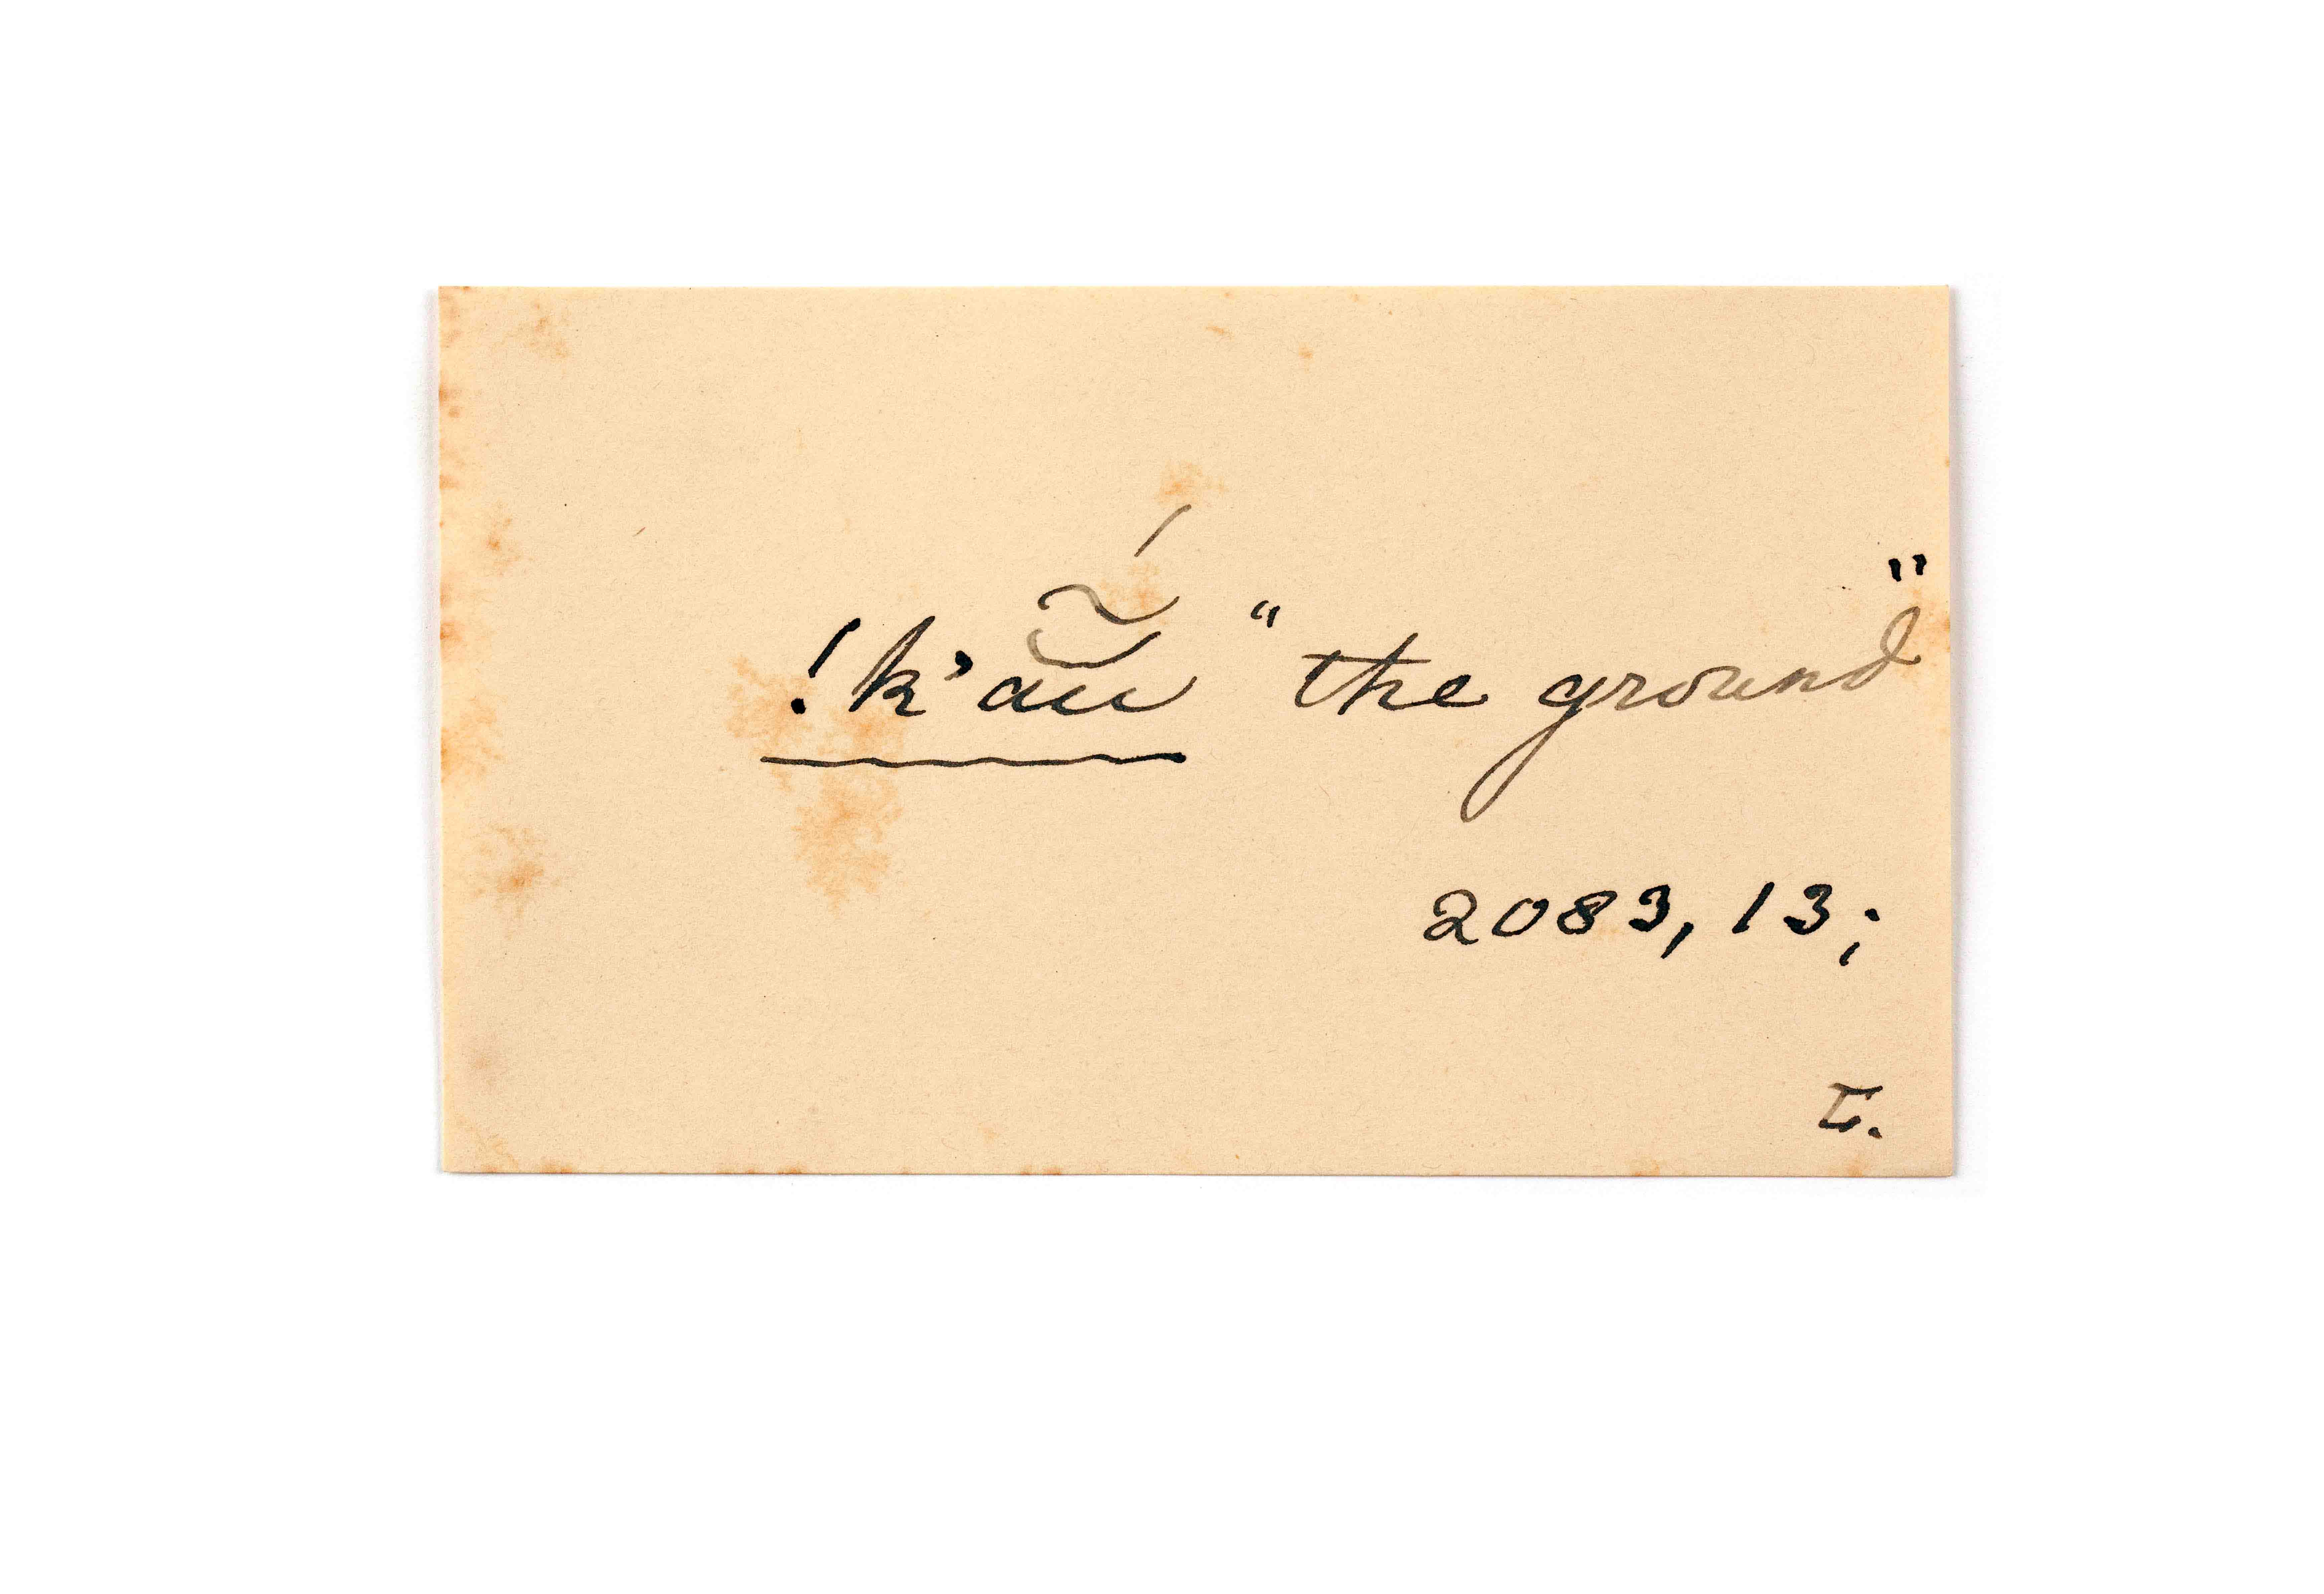 !k’ãŭ́ “the ground”
2083, 13;
L.